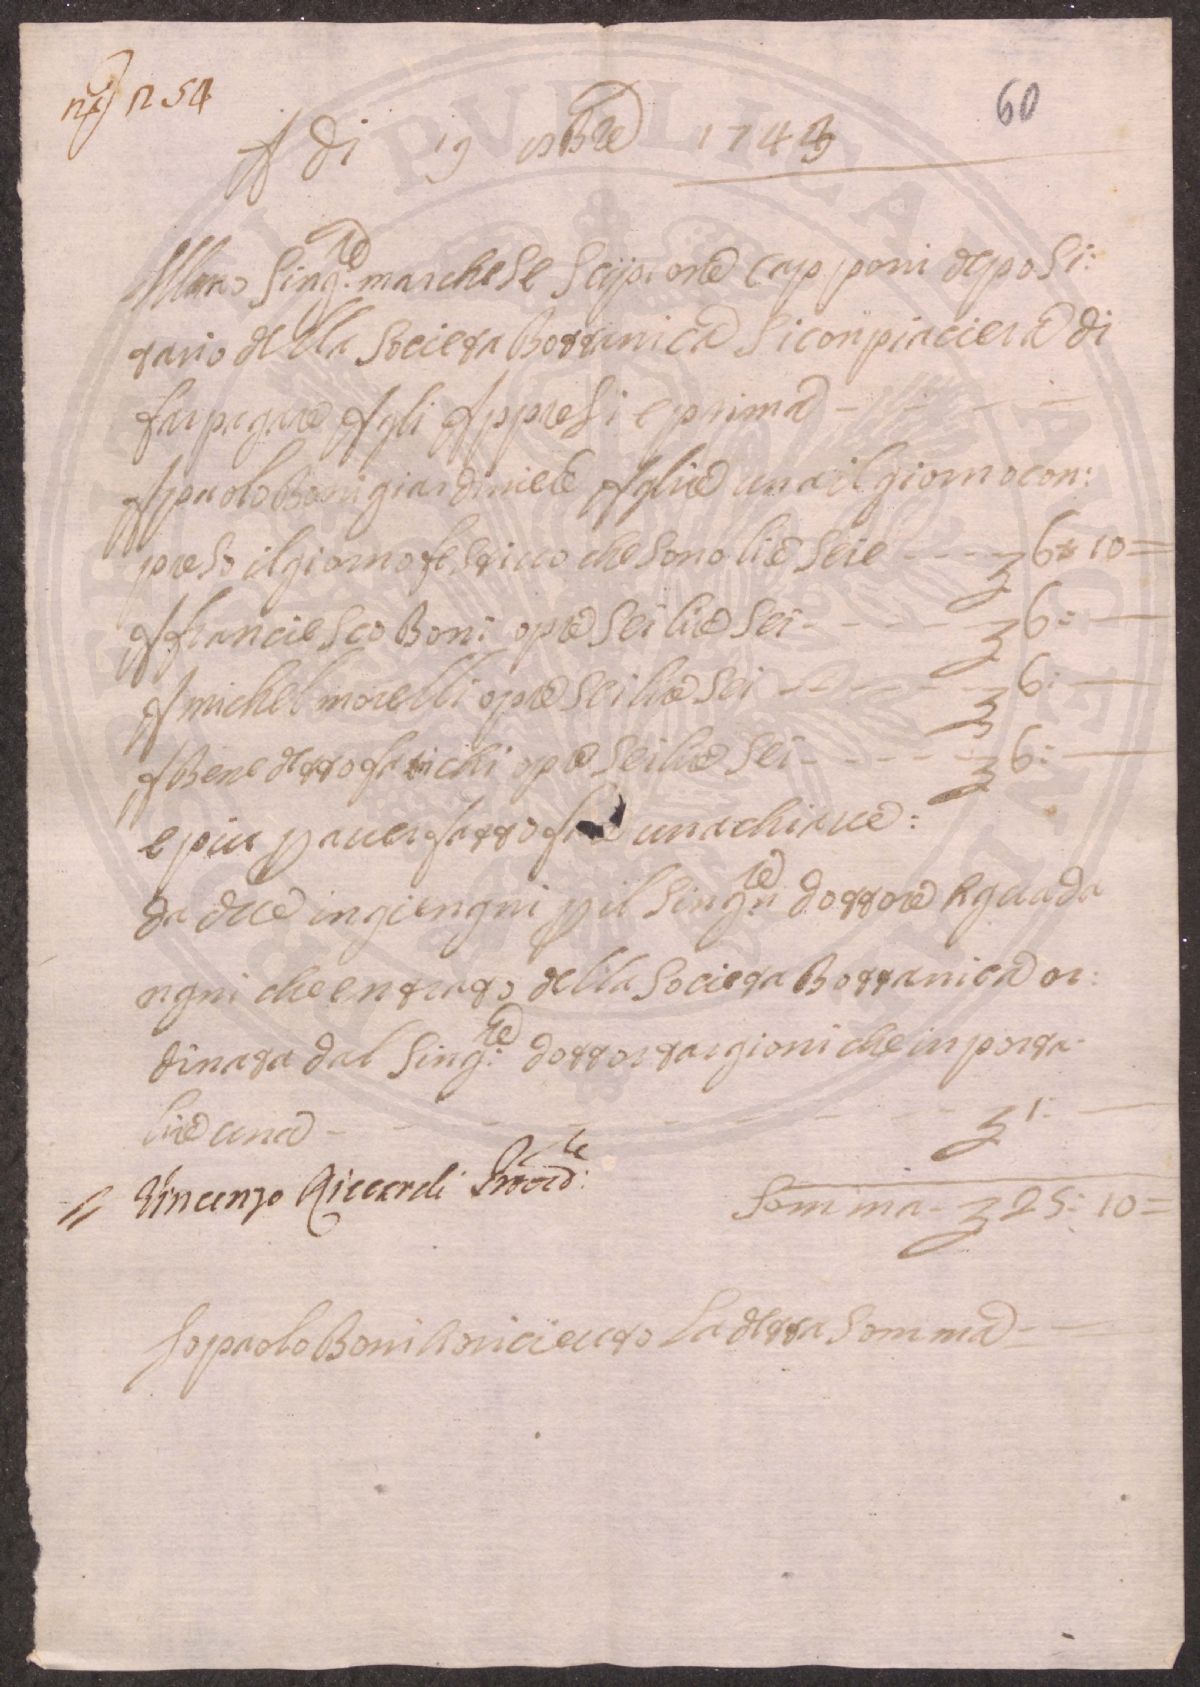 n 54
60
A di 19 9bre 1743
Ill.mo Sing.re marchese Scipione Capponi deposi:
tario della Società Bottanica si conpiacierà di
far pagare Agli Appresi e prima
A paolo Boni giardiniere A lire una il giorno con:
preso il giorno festivo che sono lire sei e 6 10
A franciesco Boni opre sei lire sei 6
A michel morelli opre sei lire sei 6
A Benedetto fanchi opre sei lire sei 6
e piu p aver fatto fare una chiave:
da due ingiengni p il Sing.re dottore
ngni che entrato della Società Bottanica or:
dinata dal Sing.re dottor targioni che inporta
lire una 1
Vincenzo Riccardi Provved.re
Somma 25: 10
Io paolo Boni ò ricievuto La detta Somma